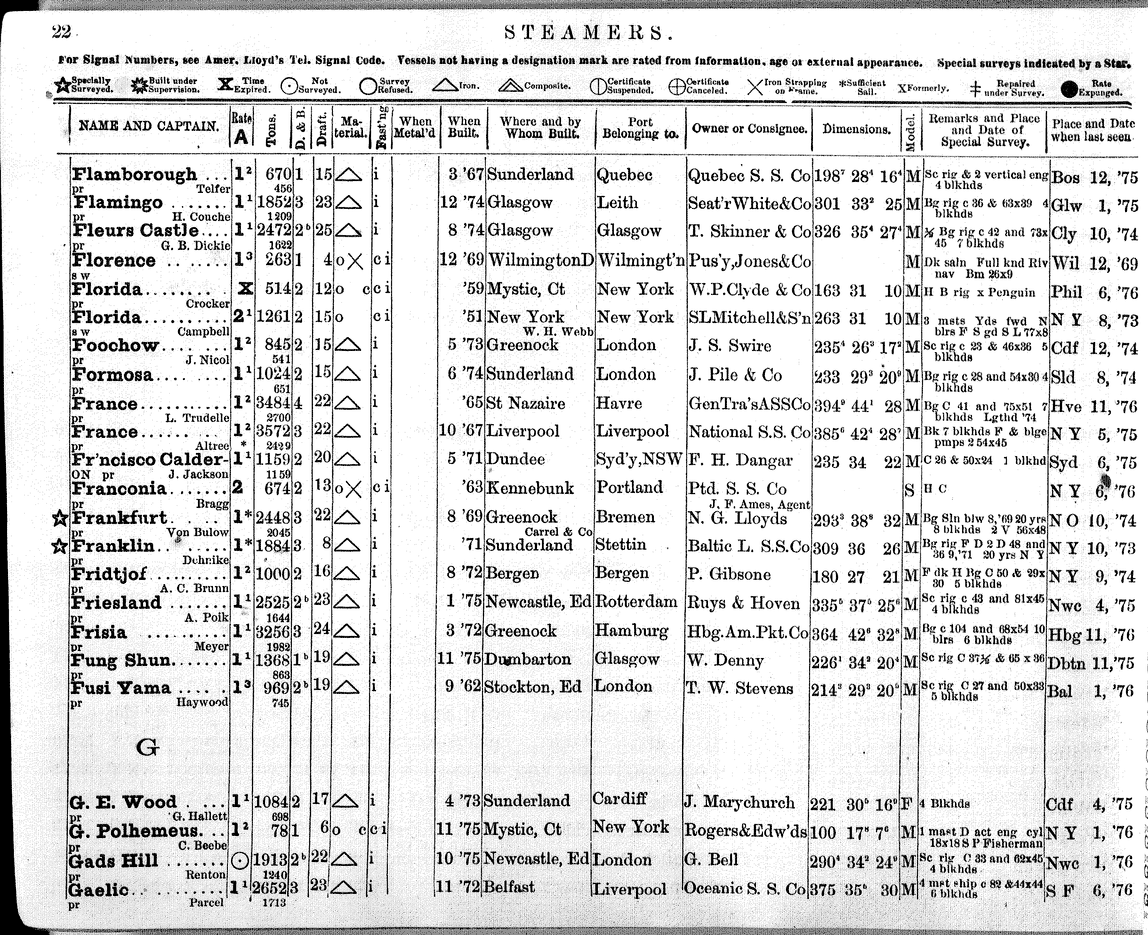 22
STEAMERS.
For Signal Numbers, see Amer. Lloyd's Tel. Signal Code. Vessels not having a designation mark are rated from information, age or external appearance. Special surveys indicated by a Star.
Specially Surveyed. Built under Supervision. Time Expired. Not Surveyed. Survey Refused. Iron. Composite. Certificate Suspended. Certificate Canceled. Iron Strapping on Frame. *Sufficient Sail. XFormerly. Repaired under Survey. Rate Expunged.
NAME AND CAPTAIN. Rate A Tons. D. & B. Draft. Material. Fast'ng When Metal'd When Built. Where and by Whom Built. Port Belonging to. Owner or Consignee. Dimensions. Model. Remarks and Place and Date of Special Survey. Place and Date when last seen
Flamborough ... 1² 670 1 15 △ i 3 '67 Sunderland Quebec Quebec S. S. Co 198⁷ 28⁴ 16⁴ M Sc rig & 2 vertical eng Bos 12, '75
pr Telfer 456 4 blkhds
Flamingo ...... 1¹ 1852 3 23 △ i 12 '74 Glasgow Leith Seat'rWhite&Co 301 33² 25 M Bg rig c 36 & 63x39 4 Glw 1, '75
pr H. Couche 1209 blkhds
Fleurs Castle.... 1¹ 2472 2ᵇ 25 △ i 8 '74 Glasgow Glasgow T. Skinner & Co 326 35⁴ 27⁴ M Bg rig c 42 and 73x Cly 10, '74
pr G. B. Dickie 1622 45 7 blkhds
Florence ........ 1³ 263 1 4 o X c i 12 '69 WilmingtonD Wilmingt'n Pus'y,Jones&Co M Dk saln Full knd Riv Wil 12, '69
s w nav Bm 26x9
Florida........ X 514 2 12 o c c i '59 Mystic, Ct New York W.P.Clyde & Co 163 31 10 M H B rig x Penguin Phil 6, '76
pr Crocker
Florida.......... 2¹ 1261 2 15 o c i '51 New York New York SLMitchell&S'n 263 31 10 M 3 msts Yds fwd N N Y 8, '73
s w Campbell W. H. Webb blrs F S gd S L 77x8
Foochow........ 1² 845 2 15 △ i 5 '73 Greenock London J. S. Swire 235⁴ 26³ 17² M Sc rig c 23 & 46x36 5 Cdf 12, '74
pr J. Nicol 541 blkhds
Formosa........ 1¹ 1024 2 15 △ i 6 '74 Sunderland London J. Pile & Co 233 29³ 20⁹ M Bg rig c 28 and 54x30 4 Sld 8, '74
pr 651 blkhds
France.......... 1² 3484 4 22 △ i '65 St Nazaire Havre GenTra'sASSCo 394⁹ 44¹ 28 M Bg C 41 and 75x51 7 Hve 11, '76
pr L. Trudelle 2700 blkhds Lgthd '74
France.......... 1² 3572 3 22 △ i 10 '67 Liverpool Liverpool National S.S. Co 385⁶ 42⁴ 28⁷ M Bk 7 blkhds F & blge N Y 5, '75
pr Altree * 2429 pmps 2 54x45
Fr'ncisco Calder- 1¹ 1159 2 20 △ i 5 '71 Dundee Syd'y,NSW F. H. Dangar 235 34 22 M C 26 & 50x24 1 blkhd Syd 6, '75
ON pr J. Jackson 1159
Franconia....... 2 674 2 13 o X c i '63 Kennebunk Portland Ptd. S. S. Co S H C N Y 6, '76
pr Bragg J. F. Ames, Agent
Frankfurt...... 1* 2448 3 22 △ i 8 '69 Greenock Bremen N. G. Lloyds 293³ 38⁸ 32 M Bg Sln blw 8,'69 20 yrs N O 10, '74
pr Von Bulow 2045 Carrel & Co 8 blkhds 2 V 56x48
Franklin........ 1* 1884 3 8 △ i '71 Sunderland Stettin Baltic L. S.S.Co 309 36 26 M Bg rig F D 2 D 48 and N Y 10, '73
pr Dehrike 36 9,'71 20 yrs N Y
Fridtjof.......... 1² 1000 2 16 △ i 8 '72 Bergen Bergen P. Gibsone 180 27 21 M F dk H Bg C 50 & 29x N Y 9, '74
pr A. C. Brunn 30 5 blkhds
Friesland ....... 1¹ 2525 2ᵇ 23 △ i 1 '75 Newcastle, Ed Rotterdam Ruys & Hoven 335⁵ 37⁵ 25⁶ M Sc rig c 43 and 81x45 Nwc 4, '75
pr A. Poik 1644 4 blkhds
Frisia ......... 1¹ 3256 3 24 △ i 3 '72 Greenock Hamburg Hbg.Am.Pkt.Co 364 42⁶ 32⁸ M Bg c 104 and 68x54 10 Hbg 11, '76
pr Meyer 1982 blrs 6 blkhds
Fung Shun....... 1¹ 1368 1ᵇ 19 △ i 11 '75 Dumbarton Glasgow W. Denny 226¹ 34² 20⁴ M Sc rig C 37½ & 65 x 36 Dbtn 11,'75
pr 863
Fusi Yama ..... 1³ 969 2ᵇ 19 △ i 9 '62 Stockton, Ed London T. W. Stevens 214³ 29³ 20⁵ M Sc rig C 27 and 50x33 Bal 1, '76
pr Haywood 745 5 blkhds
G
G. E. Wood ..... 1¹ 1084 2 17 △ i 4 '73 Sunderland Cardiff J. Marychurch 221 30⁵ 16⁹ F 4 Blkhds Cdf 4, '75
pr G. Hallett 698
G. Polhemus... 1² 78 1 6 o c c i 11 '75 Mystic, Ct New York Rogers&Edw'ds 100 17⁸ 7⁶ M 1 mast D act eng cyl N Y 1, '76
pr C. Beebe 18x18 S P Fisherman
Gads Hill ....... ⊙ 1913 2ᵇ 22 △ i 10 '75 Newcastle, Ed London G. Bell 290⁴ 34² 24⁹ M Sc rig C 33 and 62x45 Nwc 1, '76
pr Renton 1240 4 blkhds
Gaelic.......... 1¹ 2652 3 23 △ i 11 '72 Belfast Liverpool Oceanic S. S. Co 375 35⁵ 30 M 4 mst ship c 82 &44x44 S F 6, '76
pr Parcel 1713 6 blkhds